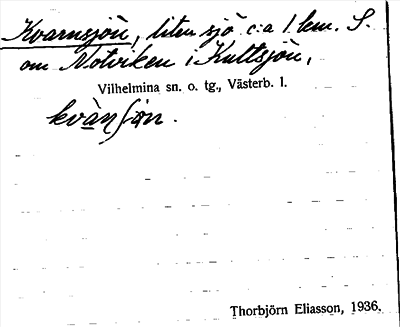 Kvarnsjön, liten sjö c:a 1 km. S.
om Notviken i Kultsjön,
Vilhelmina sn. o. tg., Västerb. l.
Thorbjörn Eliasson, 1936.